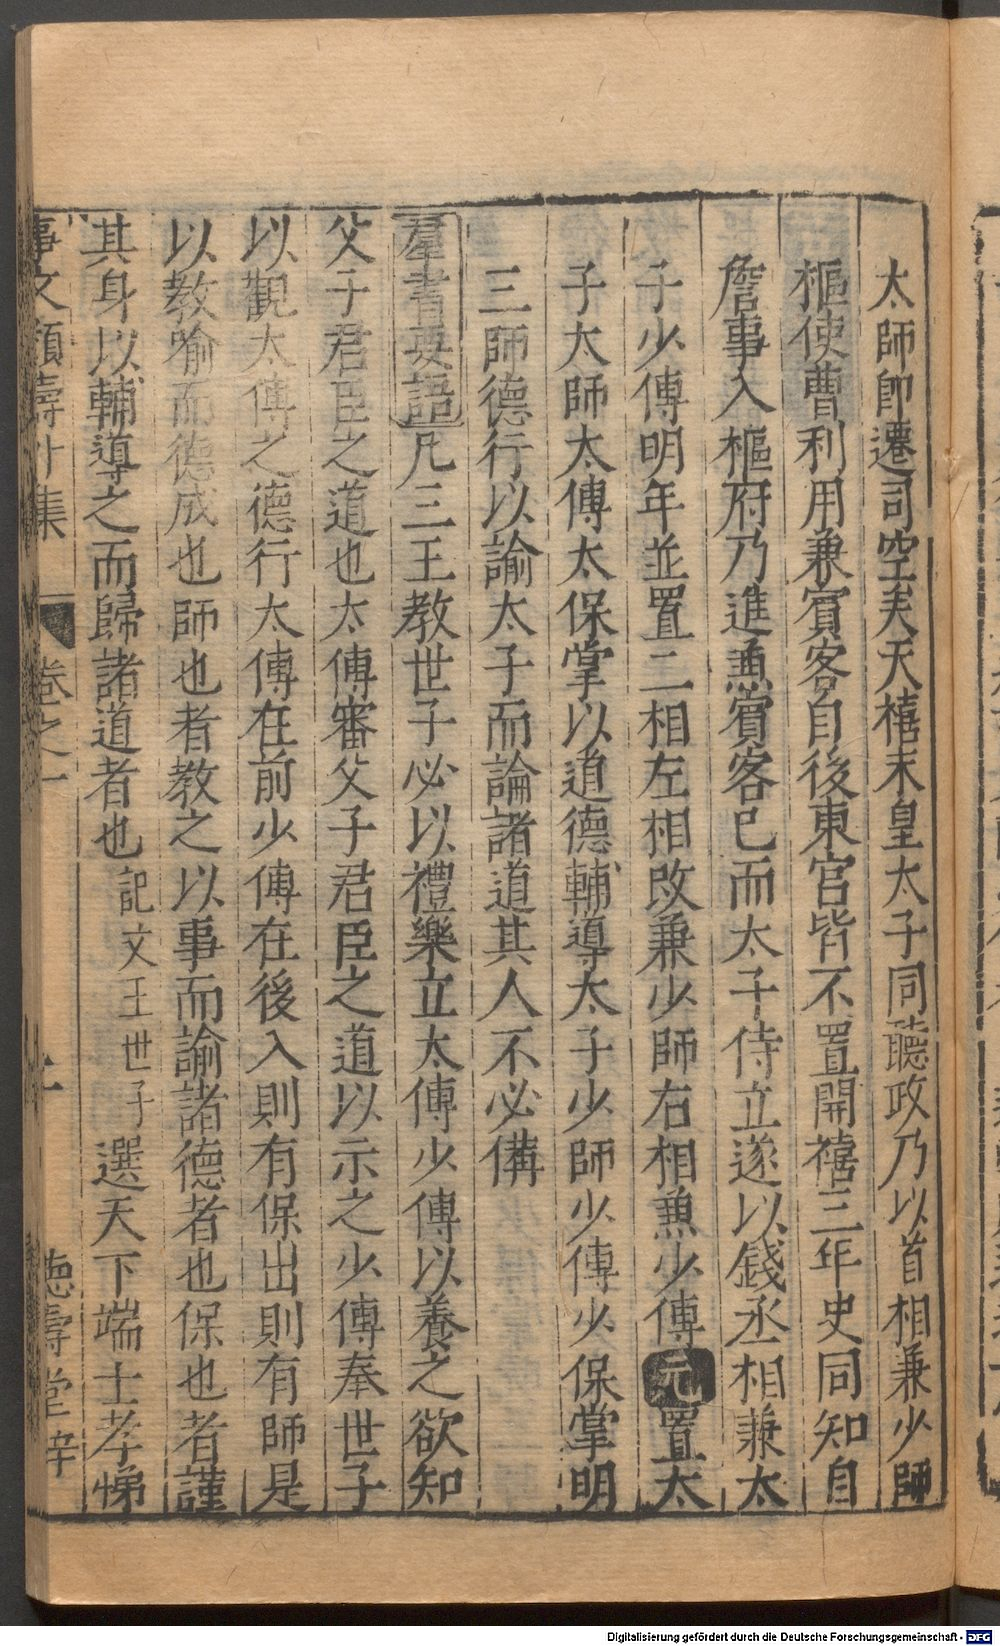 太師即遷司空矣天禧末皇太子同聽政乃以首相兼少師
樞使曹利用兼賓客自後東宮皆不置開禧三年史同知自
詹事入樞府乃進兼賓客已而太子侍立遂以錢丞相兼太
子少傅明年並置二相左相改兼少師右相兼少傅元置太
子太師太傅太保掌以道德輔導太子少師少傅少保掌明
三師德行以諭太子而論諸道其人不必備
羣書要語凡三王教世子必以禮樂立太傅少傅以養之欲知
父子君臣之道也太傅審父子君臣之道以示之少傅奉世子
以觀太傅之德行太傅在前少傅在後入則有保出則有師是
以教喻而德成也師也者教之以事而諭諸德者也保也者謹
其身以輔導之而歸諸道者也記文王世子選天下端士孝悌
事文類 集 卷之一 德壽堂梓
Digitalisierung gefördert durch die Deutsche Forschungsgemeinschaft - DFG